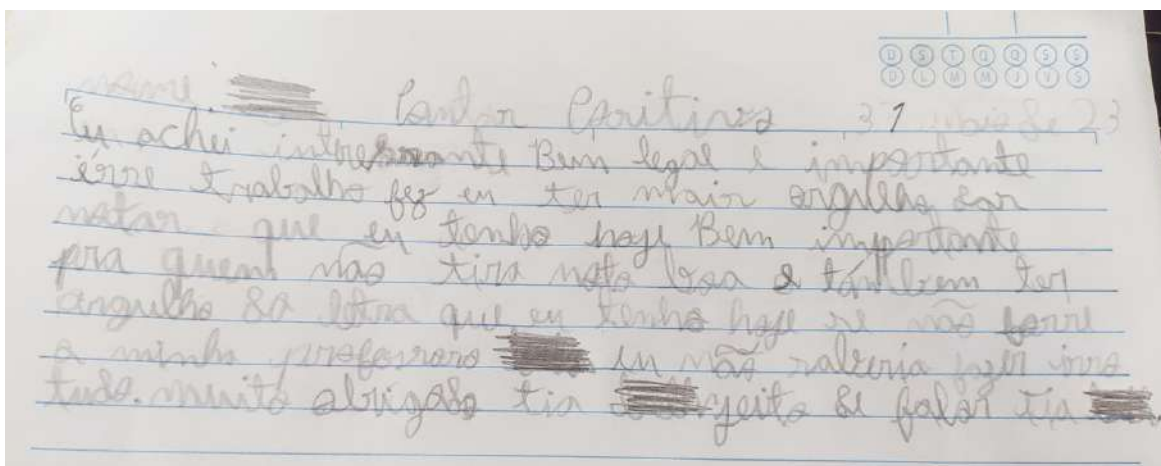 D S T Q Q S S
D L M M J V S
nome: Contar Coritiva 31 maio de 23
Eu achei intressante Bem legal e importante
érre trabalho fez eu ter mair orgulho dar
notar que eu tenho hoje Bem importante
pra quem não tira nota boa e também ter
orgulho da letra que eu tenho hoje se não forre
a minha proferrora eu não raberia fazer irro
tudo. muito obrigado tia jeito de falar tia